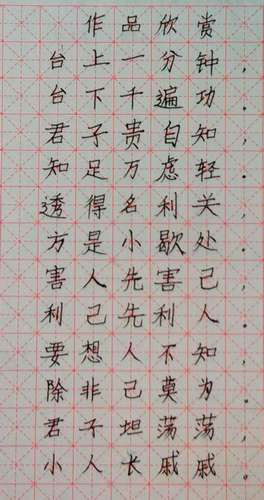 作品欣赏
台上一分钟，
台下千遍功。
君子贵自知，
知足万虑轻。
透得名利关，
方是小歇处。
害人先害己，
利己先利人。
要想人不知，
除非己莫为。
君子坦荡荡，
小人长戚戚。